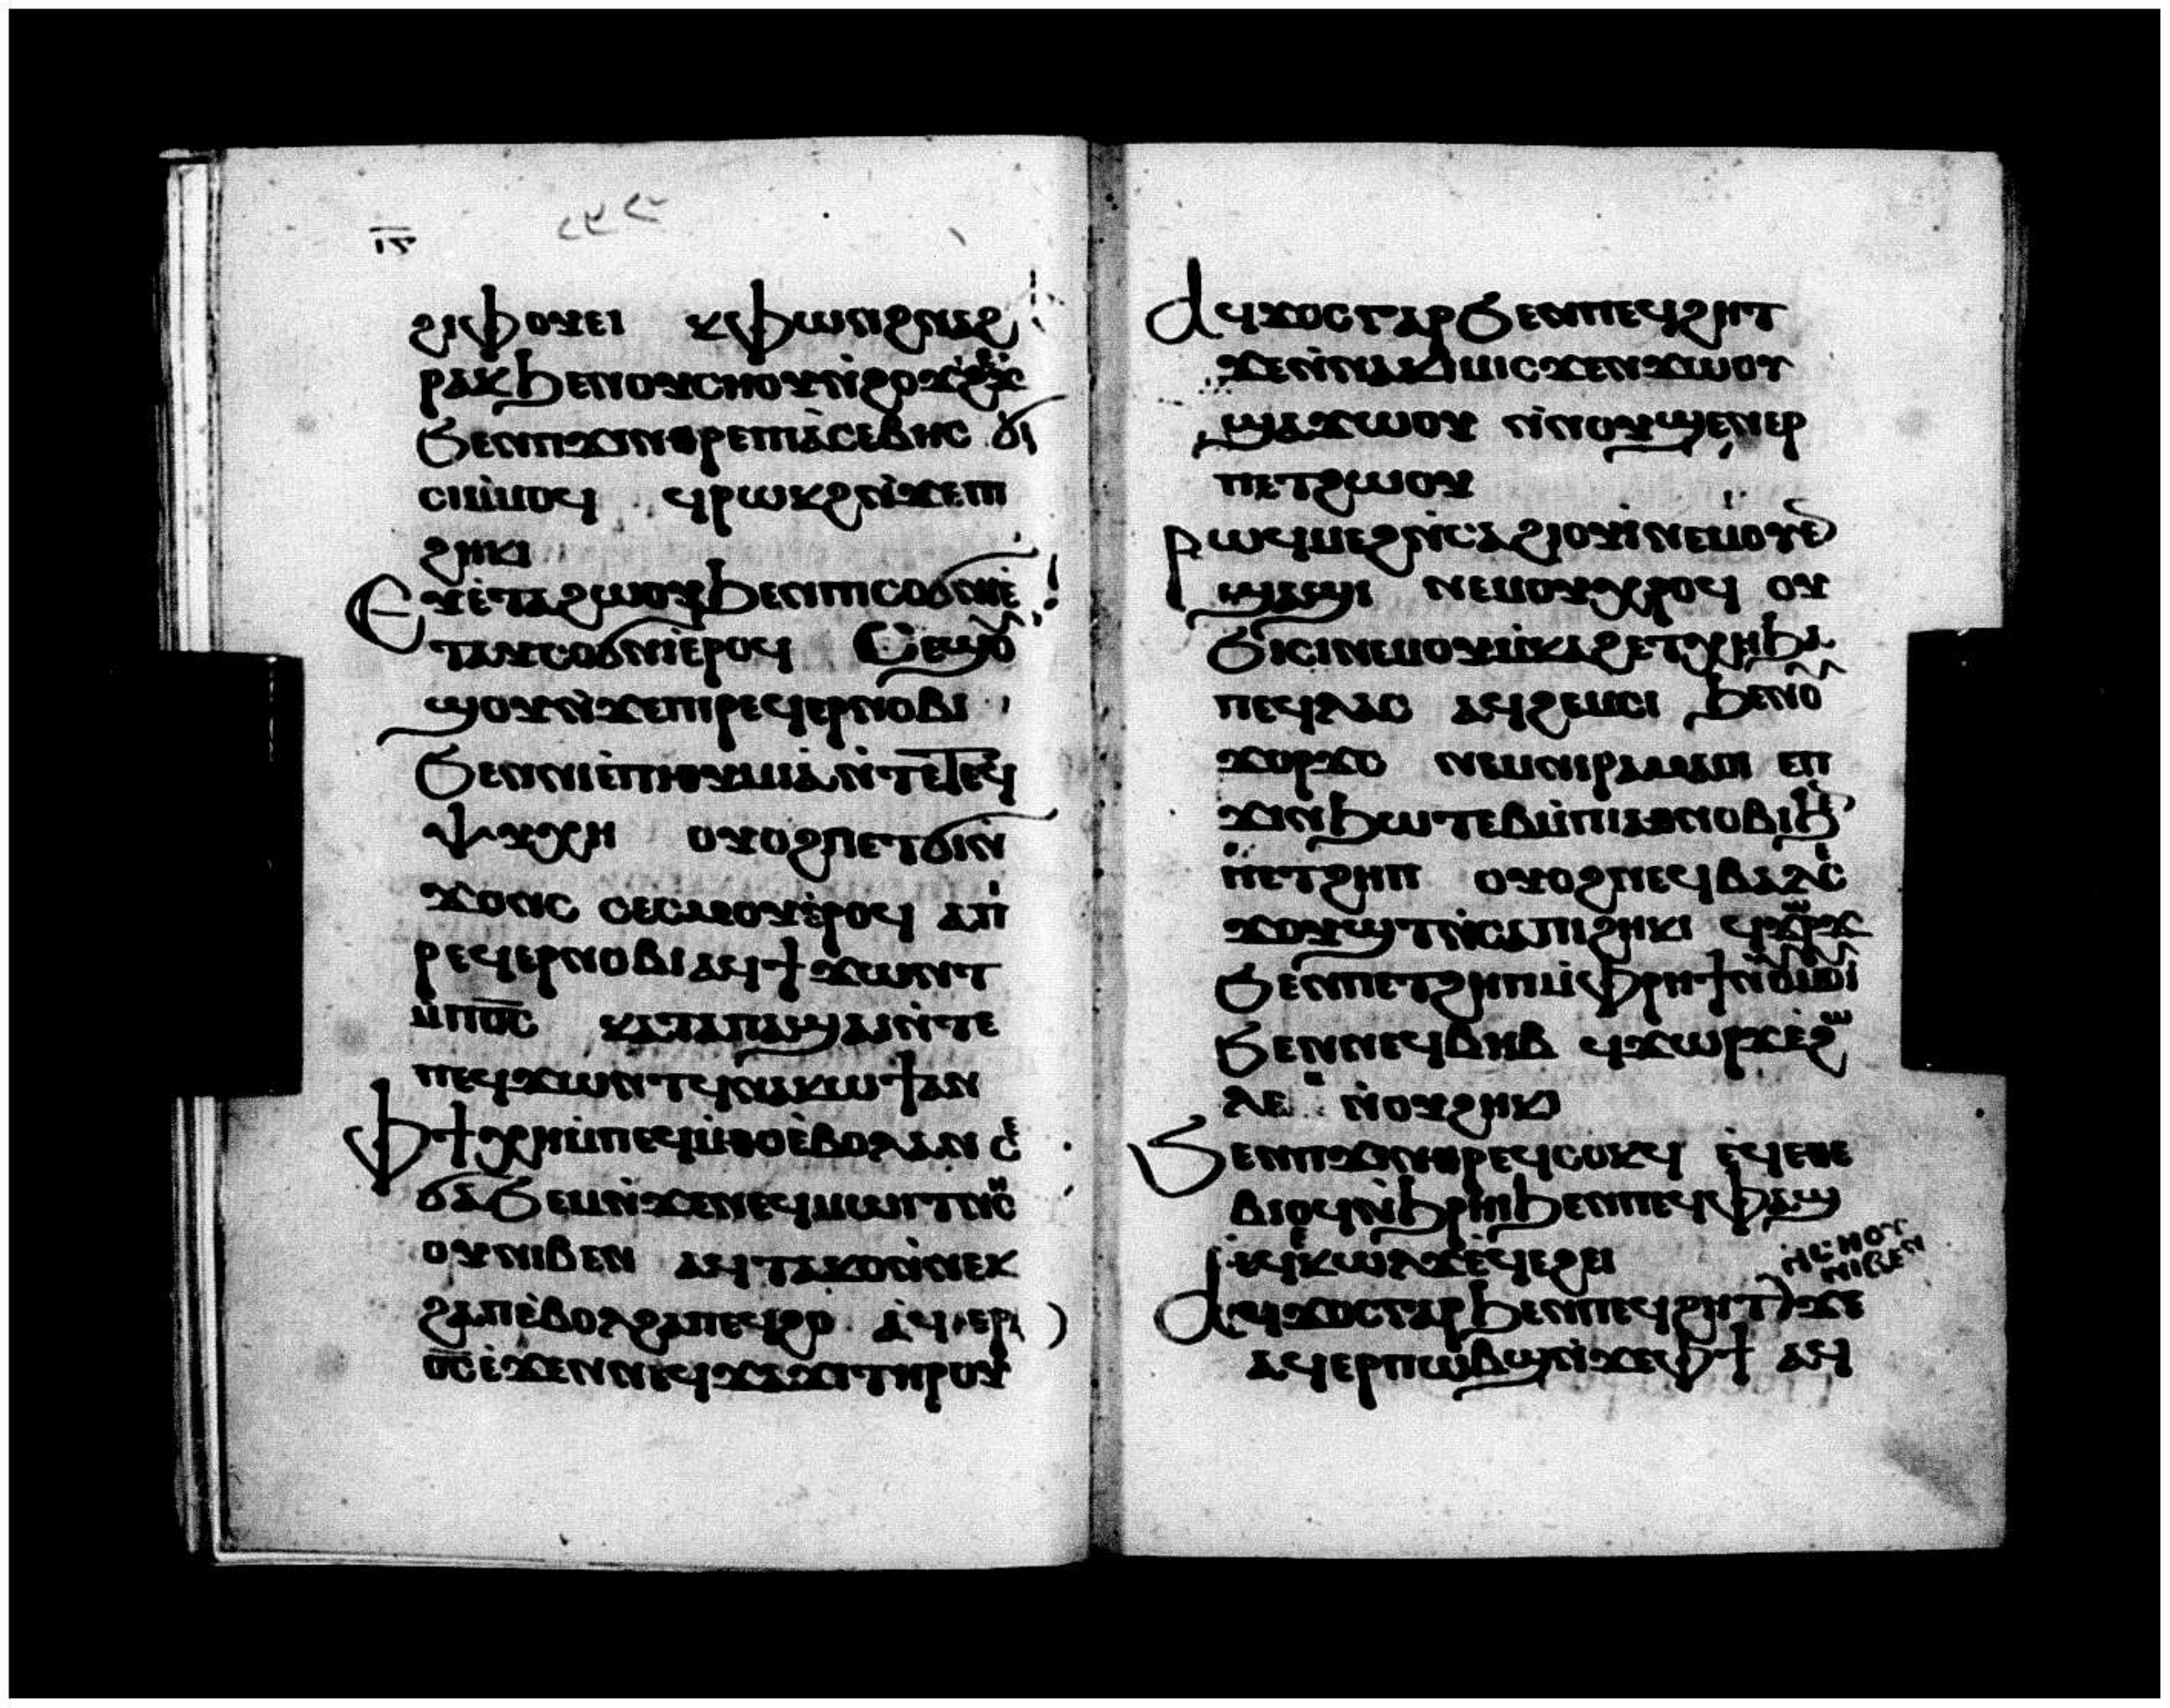 ⲓⲋ
ϩⲓⲫⲟⲩⲉⲓ ⲕⲫⲱⲛϩⲙⲙⲟϩ
ⲣⲁⲕϧⲉⲛⲟⲩⲥⲏⲟⲩⲛ̀ϩⲟϫϩⲉϫ
ϧⲉⲛⲡϫⲓⲛⲑⲣⲉⲡⲓⲁ̀ⲥⲉⲃⲏⲥ ϭⲓ
ⲥⲓⲙ̀ⲙⲟϥ ϥⲣⲱⲕϩⲛ̀ϫⲉⲡⲓ
ϩⲏⲕⲓ
Ⲉⲩⲉ̀ⲧⲁϩⲱⲟⲩϧⲉⲛⲡⲓⲥⲟϭⲛⲓⲉ̀
ⲧⲁⲩⲥⲟϭⲛⲓⲉ̀ⲣⲟϥ Ⲥⲉϣⲟⲩ
ϣⲟⲩⲛ̀ϫⲉⲡⲓⲣⲉϥⲉⲣⲛⲟⲃⲓ
ϧⲉⲛⲛⲓⲉ̀ⲡⲓⲑⲩⲙⲓⲁ̀ⲛ̀ⲧⲉⲧⲉϥ
ⲯⲩⲭⲏ ⲟⲩⲟϩⲡⲉⲧϭⲓⲛ̀
ϫⲟⲛⲥ ⲥⲉⲥⲙⲟⲩⲉ̀ⲣⲟϥ ⲁⲡⲓ
ⲣⲉϥⲉⲣⲛⲟⲃⲓⲁϥϯϫⲱⲛⲧ
ⲙ̀ⲡⲟ̅ⲥ̅ ⲕⲁⲧⲁⲡⲁϣⲁⲓⲛ̀ⲧⲉ
ⲡⲉϥϫⲱⲛⲧϥⲛⲁⲕⲱϯⲁⲛ
ⲫϯⲭⲏⲙ̀ⲡⲉϥⲙ̀ⲑⲟⲉ̀ⲃⲟⲗⲁⲛ ⲥⲉ
ϭⲁϧⲉⲙⲛ̀ϫⲉⲛⲉϥⲙⲱⲓⲧⲛ̀ⲥⲏ
ⲟⲩⲛⲓⲃⲉⲛ ⲁϥⲧⲁⲕⲟⲛ̀ⲛⲉⲕ
ϩⲁⲡⲉ̀ⲃⲟⲗϩⲁⲡⲉϥϩⲟ ⲁϥⲉⲣ
ⲟ̅ⲥ̅ⲉ̀ϫⲉⲛⲛⲉϥϫⲁϫⲓⲧⲏⲣⲟⲩ
Ⲁϥϫⲟⲥⲅⲁⲣϧⲉⲛⲡⲉϥϩⲏⲧ
ϫⲉⲛ̀ⲛⲁⲕⲓⲙⲓⲥϫⲉⲛϫⲱⲟⲩ
ϣⲁϫⲱⲟⲩ ⲛ̀ⲛⲟⲩϣⲉⲛⲉⲣ
ⲡⲉⲧϩⲱⲟⲩ
Ⲣⲱϥⲙⲉϩⲛ̀ⲥⲁϩⲟⲩⲓ̀ⲛⲉⲙⲟⲩⲉ
ϣⲁϣⲓ ⲛⲉⲙⲟⲩⲭⲣⲟϥ ⲟⲩ
ϧⲓⲥⲓⲛⲉⲙⲟⲩⲙ̀ⲕⲁϩⲉⲧⲭⲏϧⲁ
ⲡⲉϥⲗⲁⲥ ⲁϥϩⲉⲙⲥⲓ ϧⲉⲛⲟⲩ
ϫⲟⲣϫⲥ ⲛⲉⲙⲛⲓⲣⲁⲙⲁⲟⲓ ⲉⲡ
ϫⲓⲛϧⲱⲧⲉⲃⲙ̀ⲡⲓⲁⲑⲛⲟⲃⲓϧⲉ
ⲡⲉⲧϩⲏⲡ ⲟⲩⲟϩⲛⲉϥⲃⲁⲗⲥⲉ
ϫⲟⲩϣⲧⲛ̀ⲥⲁⲡⲓϩⲏⲕⲓ ϥϫⲱⲣϫ
ϧⲉⲛⲡⲉⲧϩⲏⲡⲙ̀ⲫⲣⲏϯⲛ̀ⲟⲩⲙⲟⲩⲓ
ϧⲉⲛⲛⲉϥⲃⲏⲃ ϥϫⲱⲣϫⲉ̀ϩⲱ
ⲗⲉⲙ ⲛ̀ⲟⲩϩⲏⲕⲓ
Ϧⲉⲛⲡϫⲓⲛⲑⲣⲉϥⲥⲟⲕϥ ⲉϥⲉⲑⲉ
ⲃⲓⲟϥⲛ̀ϧⲣⲏⲓϧⲉⲛⲡⲉϥⲫⲁϣ
ⲉϥⲉⲕⲱⲗϫⲉϥⲉϩⲉⲓ
ⲛ̀ⲥⲏⲟⲩ
ⲛⲓⲃⲉⲛ
Ⲁϥϫⲟⲥⲅⲁⲣϧⲉⲛⲡⲉϥϩⲏⲧϫⲉ
ⲁϥⲉⲣⲡⲱⲃϣⲛ̀ϫⲉⲫϯ ⲁϥ